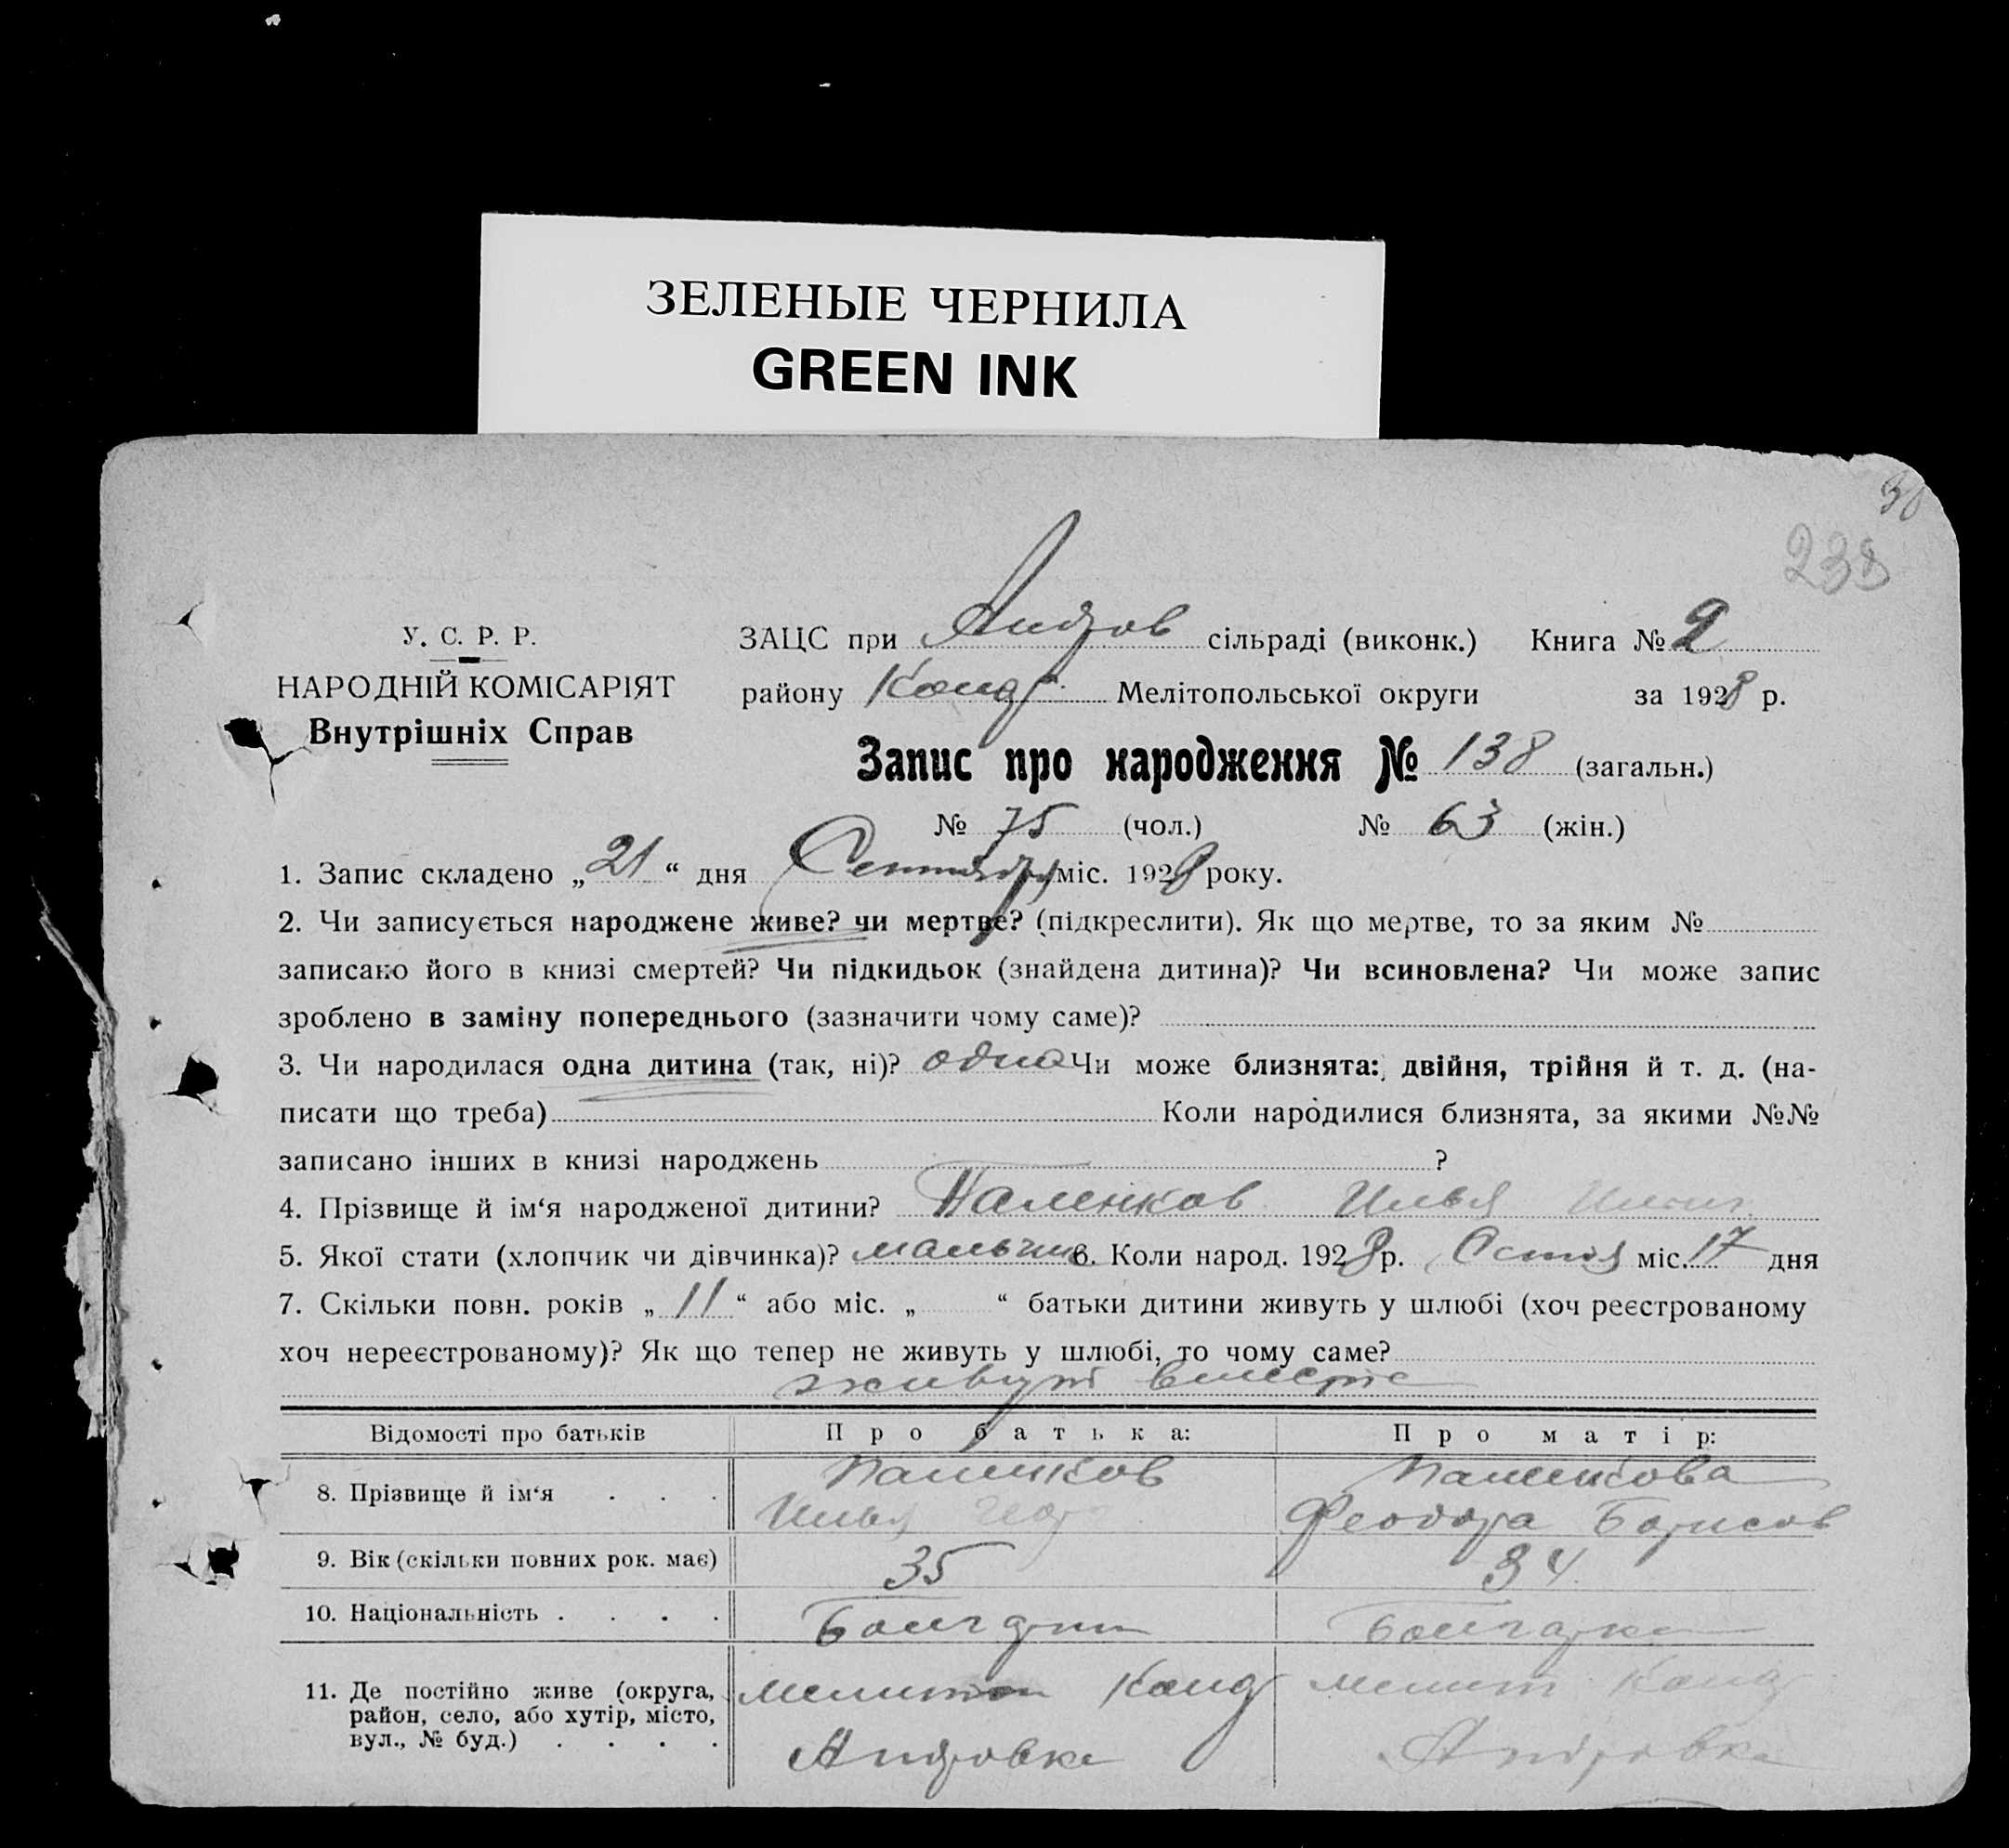 ЗЕЛЕНЫЕ ЧЕРНИЛА
GREEN INK
30
238
У. С. Р. Р.
НАРОДНІЙ КОМІСАРІЯТ
Внутрішніх Справ
ЗАЦС при Андров сільраді (виконк.) Книга № 2
району Мелітопольської округи за 1928 р.
Запис про народження № 138 (загальн.)
№ 75 (чол.) № 63 (жін.)
1. Запис складено „21“ дня Сентября міс. 1928 року.
2. Чи записується народжене живе? чи мертве? (підкреслити). Як що мертве, то за яким №
записано його в книзі смертей? Чи підкидьок (знайдена дитина)? Чи всиновлена? Чи може запис
зроблено в заміну попереднього (зазначити чому саме)?
3. Чи народилася одна дитина (так, ні)? одна Чи може близнята: двійня, трійня й т. д. (на-
писати що треба) Коли народилися близнята, за якими №№
записано інших в книзі народжень ?
4. Прізвище й ім‘я народженої дитини? Паленков Илья
5. Якої стати (хлопчик чи дівчинка)? мальчик 6. Коли народ. 1928 р. міс. 17 дня
7. Скільки повн. років „11“ або міс. „ “ батьки дитини живуть у шлюбі (хоч реєстрованому
хоч нереєстрованому)? Як що тепер не живуть у шлюбі, то чому саме?
живут вместе
Відомості про батьків Про батька: Про матір:
8. Прізвище й ім‘я . . . Паленков Паленкова
Илья Феодора Борисов
9. Вік (скільки повних рок. має) 35 34
10. Національність . . . . Болгарин Болгарка
11. Де постійно живе (округа, район, село, або хутір, місто, вул., № буд.) . . . . Мелитоп Мелит
Андровка Андровка